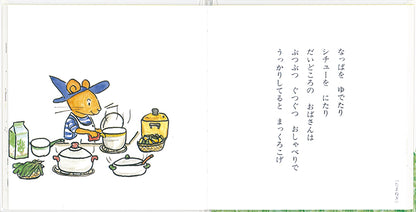 なっぱを　ゆでたり
シチューを　にたり
だいどころの　おばさんは
ぶつぶつ　ぐつぐつ　おしゃべりで
うっかりしてると　まっくろこげ